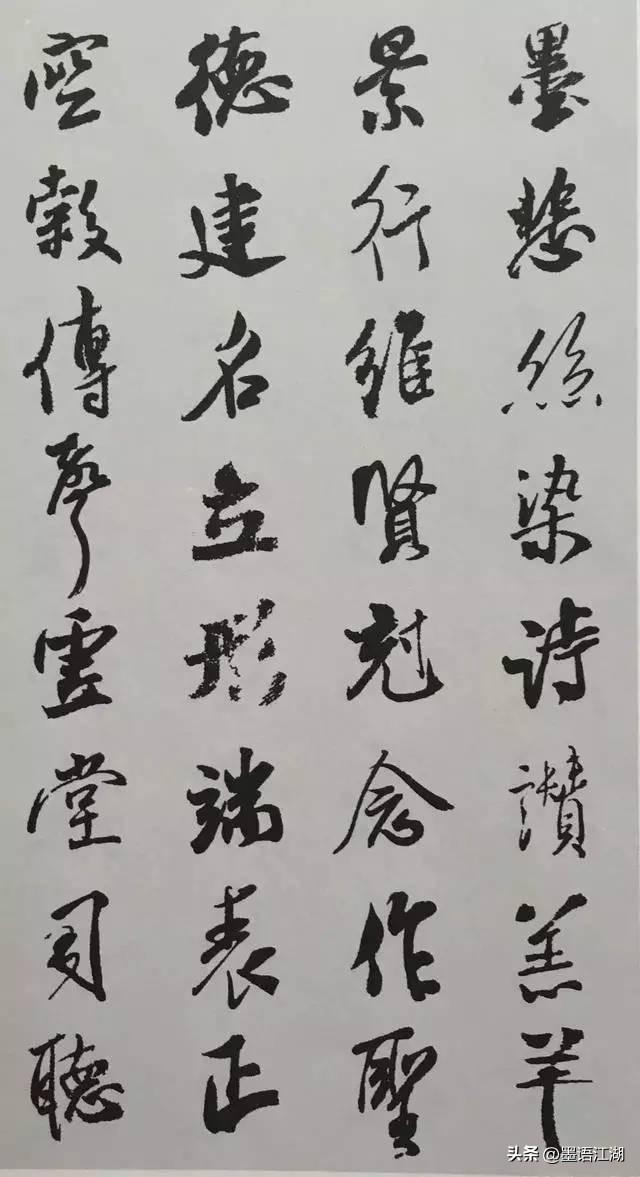 墨悲絲染詩讚羔羊
景行維賢尅念作聖
德建名立形端表正
空穀傳聲虛堂習聽
头条 @墨语江湖